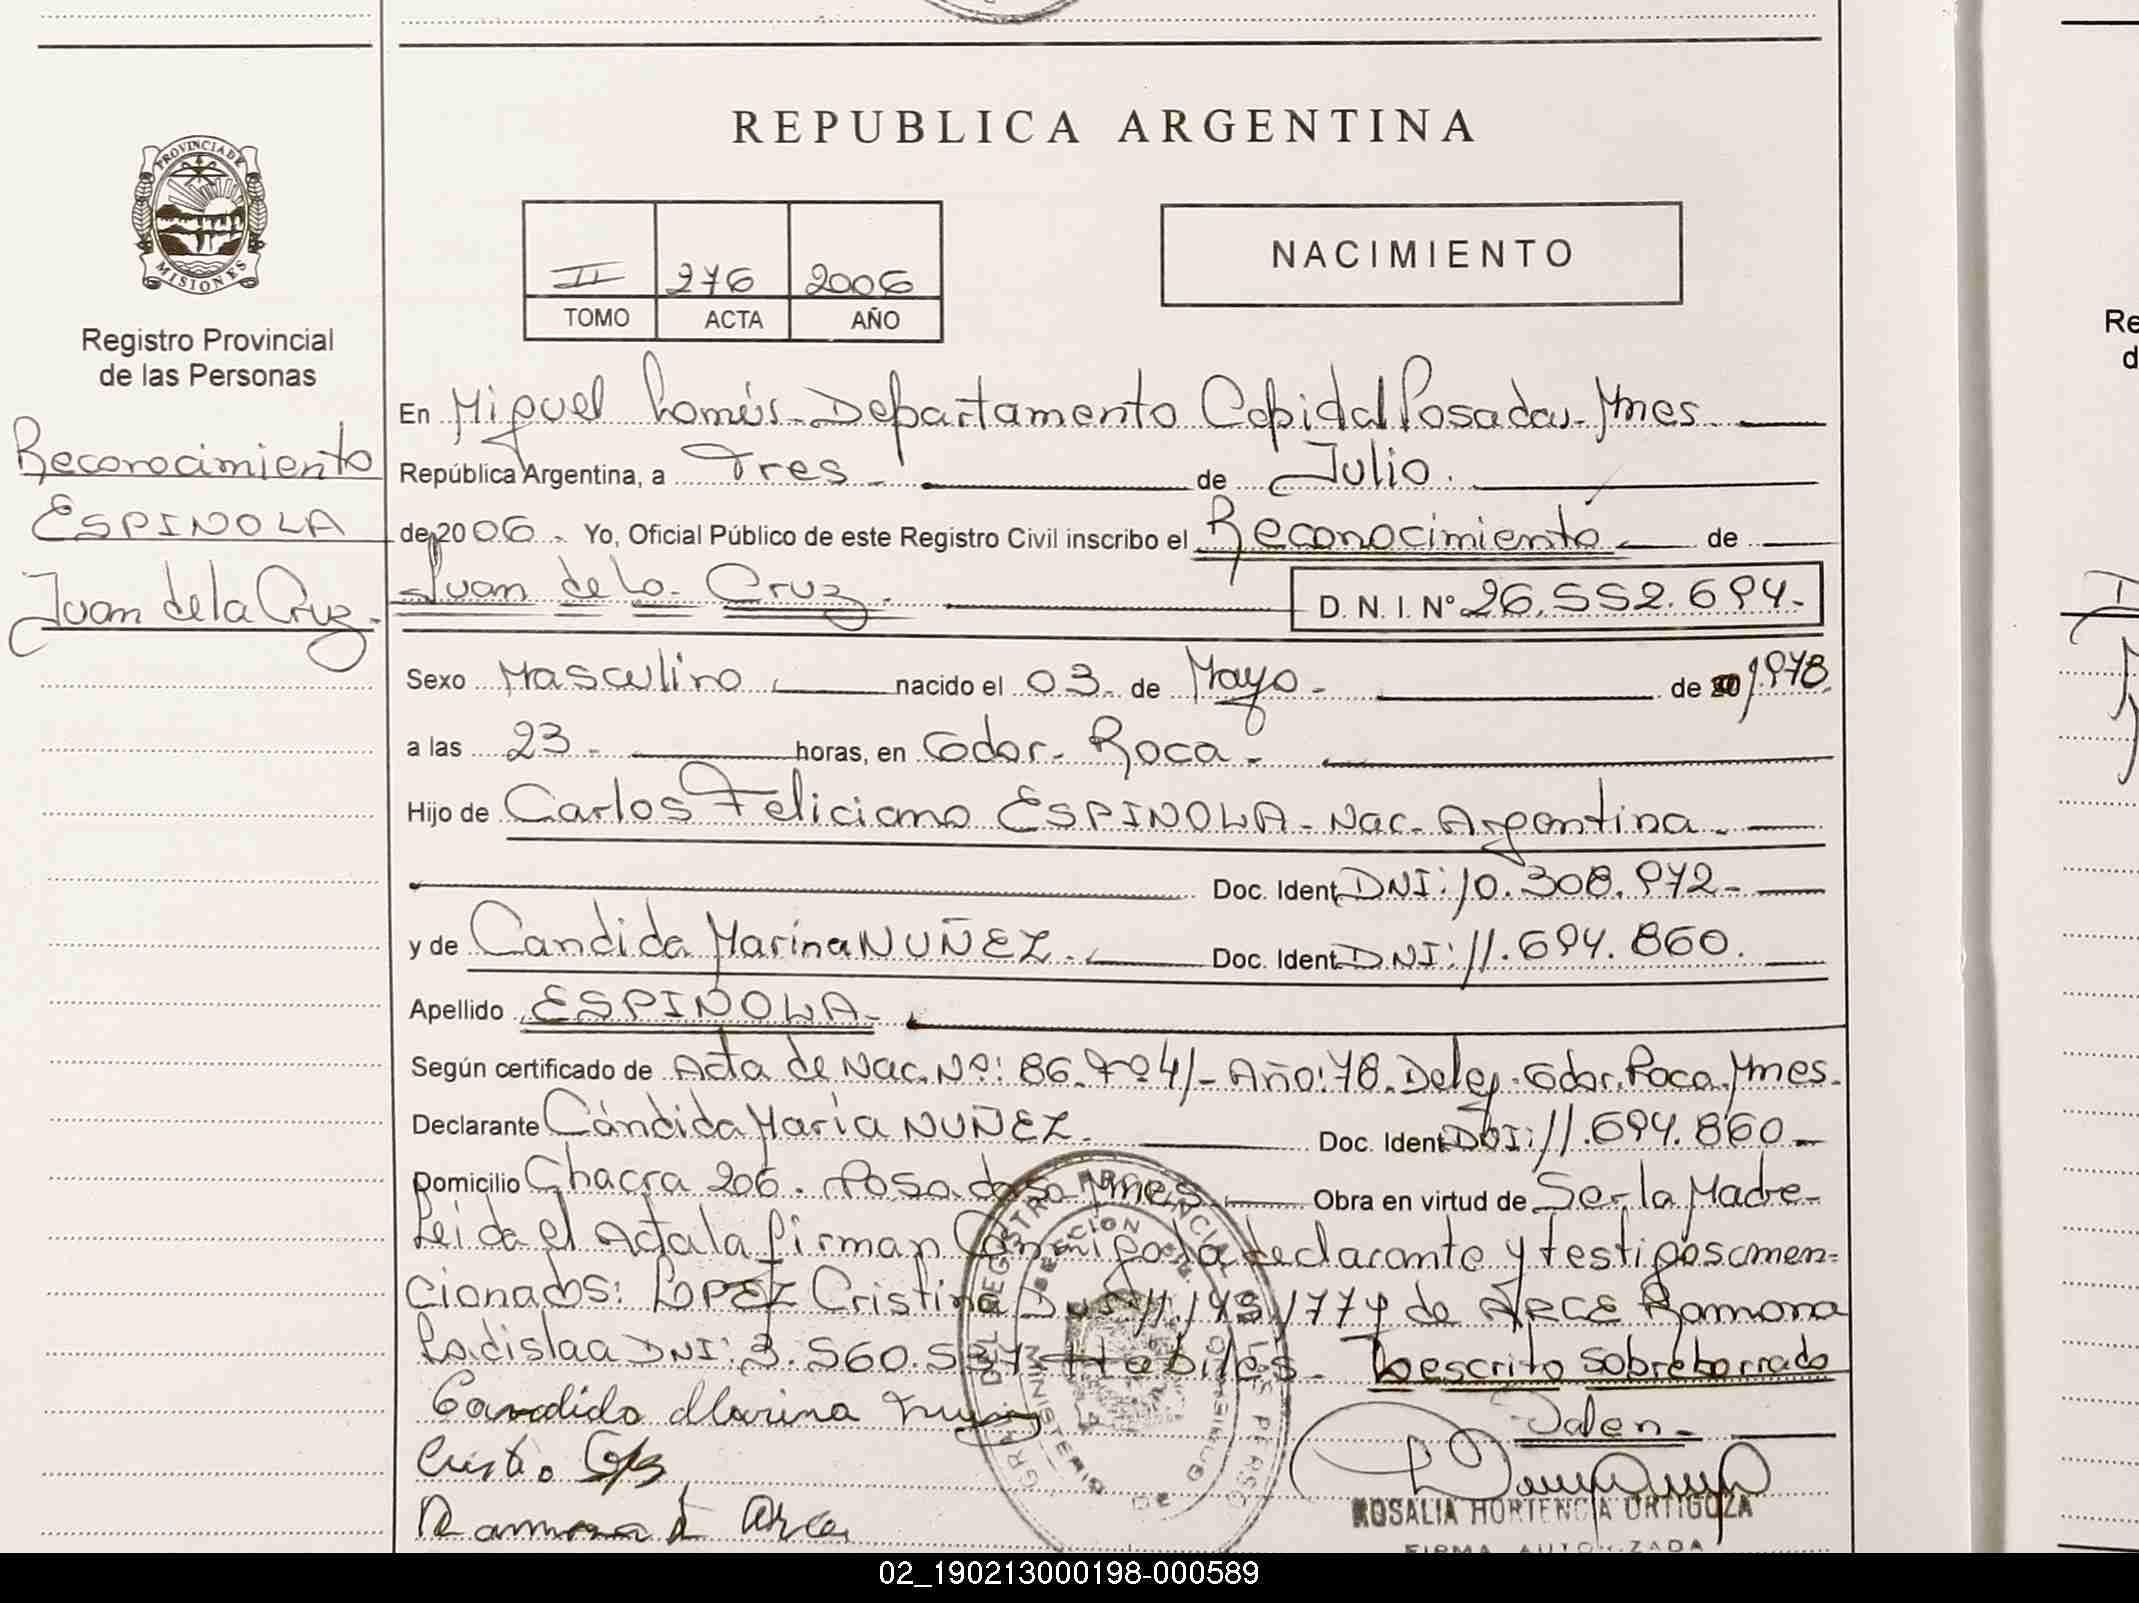 REPUBLICA ARGENTINA
PROVINCIA DE
MISIONES
NACIMIENTO
II 276 2006
TOMO ACTA AÑO
Registro Provincial
de las Personas
Reconocimiento
ESPINOLA
Juan de la Cruz.
En Miguel Lanús - Departamento Capital Posadas - Mnes.
República Argentina, a Tres de Julio.
de 2006. Yo, Oficial Público de este Registro Civil inscribo el Reconocimiento de
Juan de la Cruz. D. N. I. Nº 26.552.694.-
Sexo Masculino nacido el 03. de Mayo - de 1978.
a las 23 - horas, en Gdor. Roca -
Hijo de Carlos Feliciano ESPINOLA - Nac. Argentina -
Doc. Ident. DNI: 10.308.972 -
y de Candida Marina NUÑEZ. Doc. Ident. DNI: 11.694.860.
Apellido ESPINOLA -
Según certificado de Acta de Nac. Nº: 86. Año: 78. Deleg. Gdor. Roca. Mnes.
Declarante Cándida María NUÑEZ. Doc. Ident. DNI: 11.694.860 -
Domicilio Chacra 206. Posadas Mnes Obra en virtud de Ser la Madre -
Leida el Acta la firman Conmigo la declarante y testigos men=
cionados: LOPEZ Cristina DNI: de ARCE Ramona
Ladislaa DNI: 3.560.537 Habiles - Lo escrito sobre borrado
Candida Marina
Valen -
Ramona Arce
ROSALIA HORTENCIA ORTIGOZA
FIRMA AUTORIZADA
Re
d
02_190213000198-000589